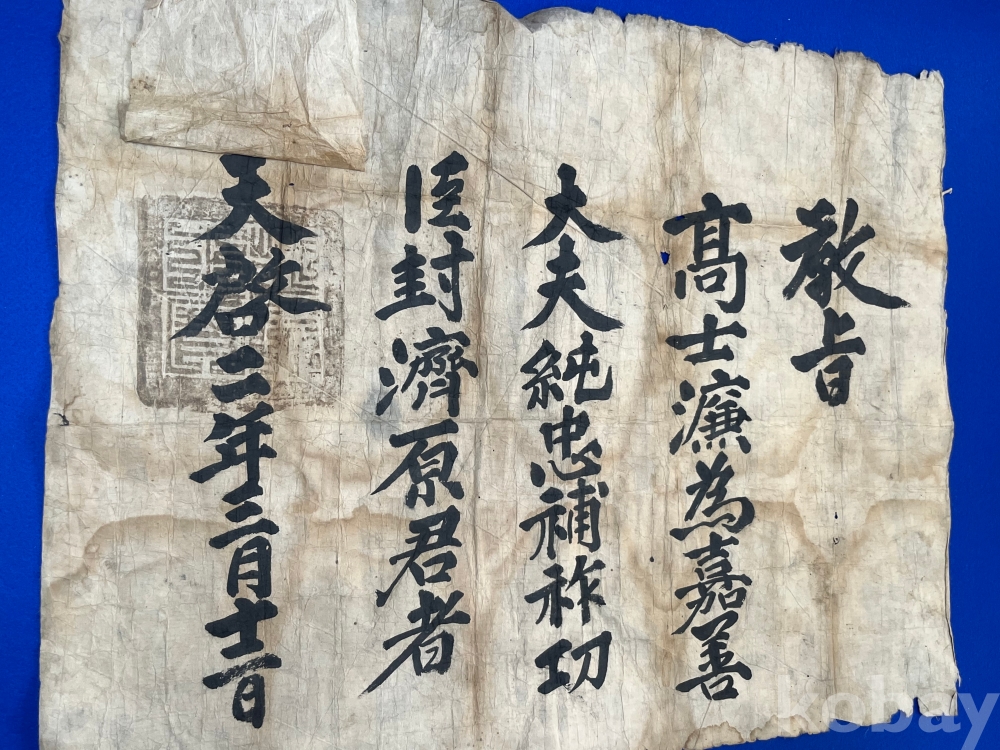 教旨
高士濂為嘉善
大夫純忠補祚功
臣封濟原君者
天啓二年三月十二日
kobay